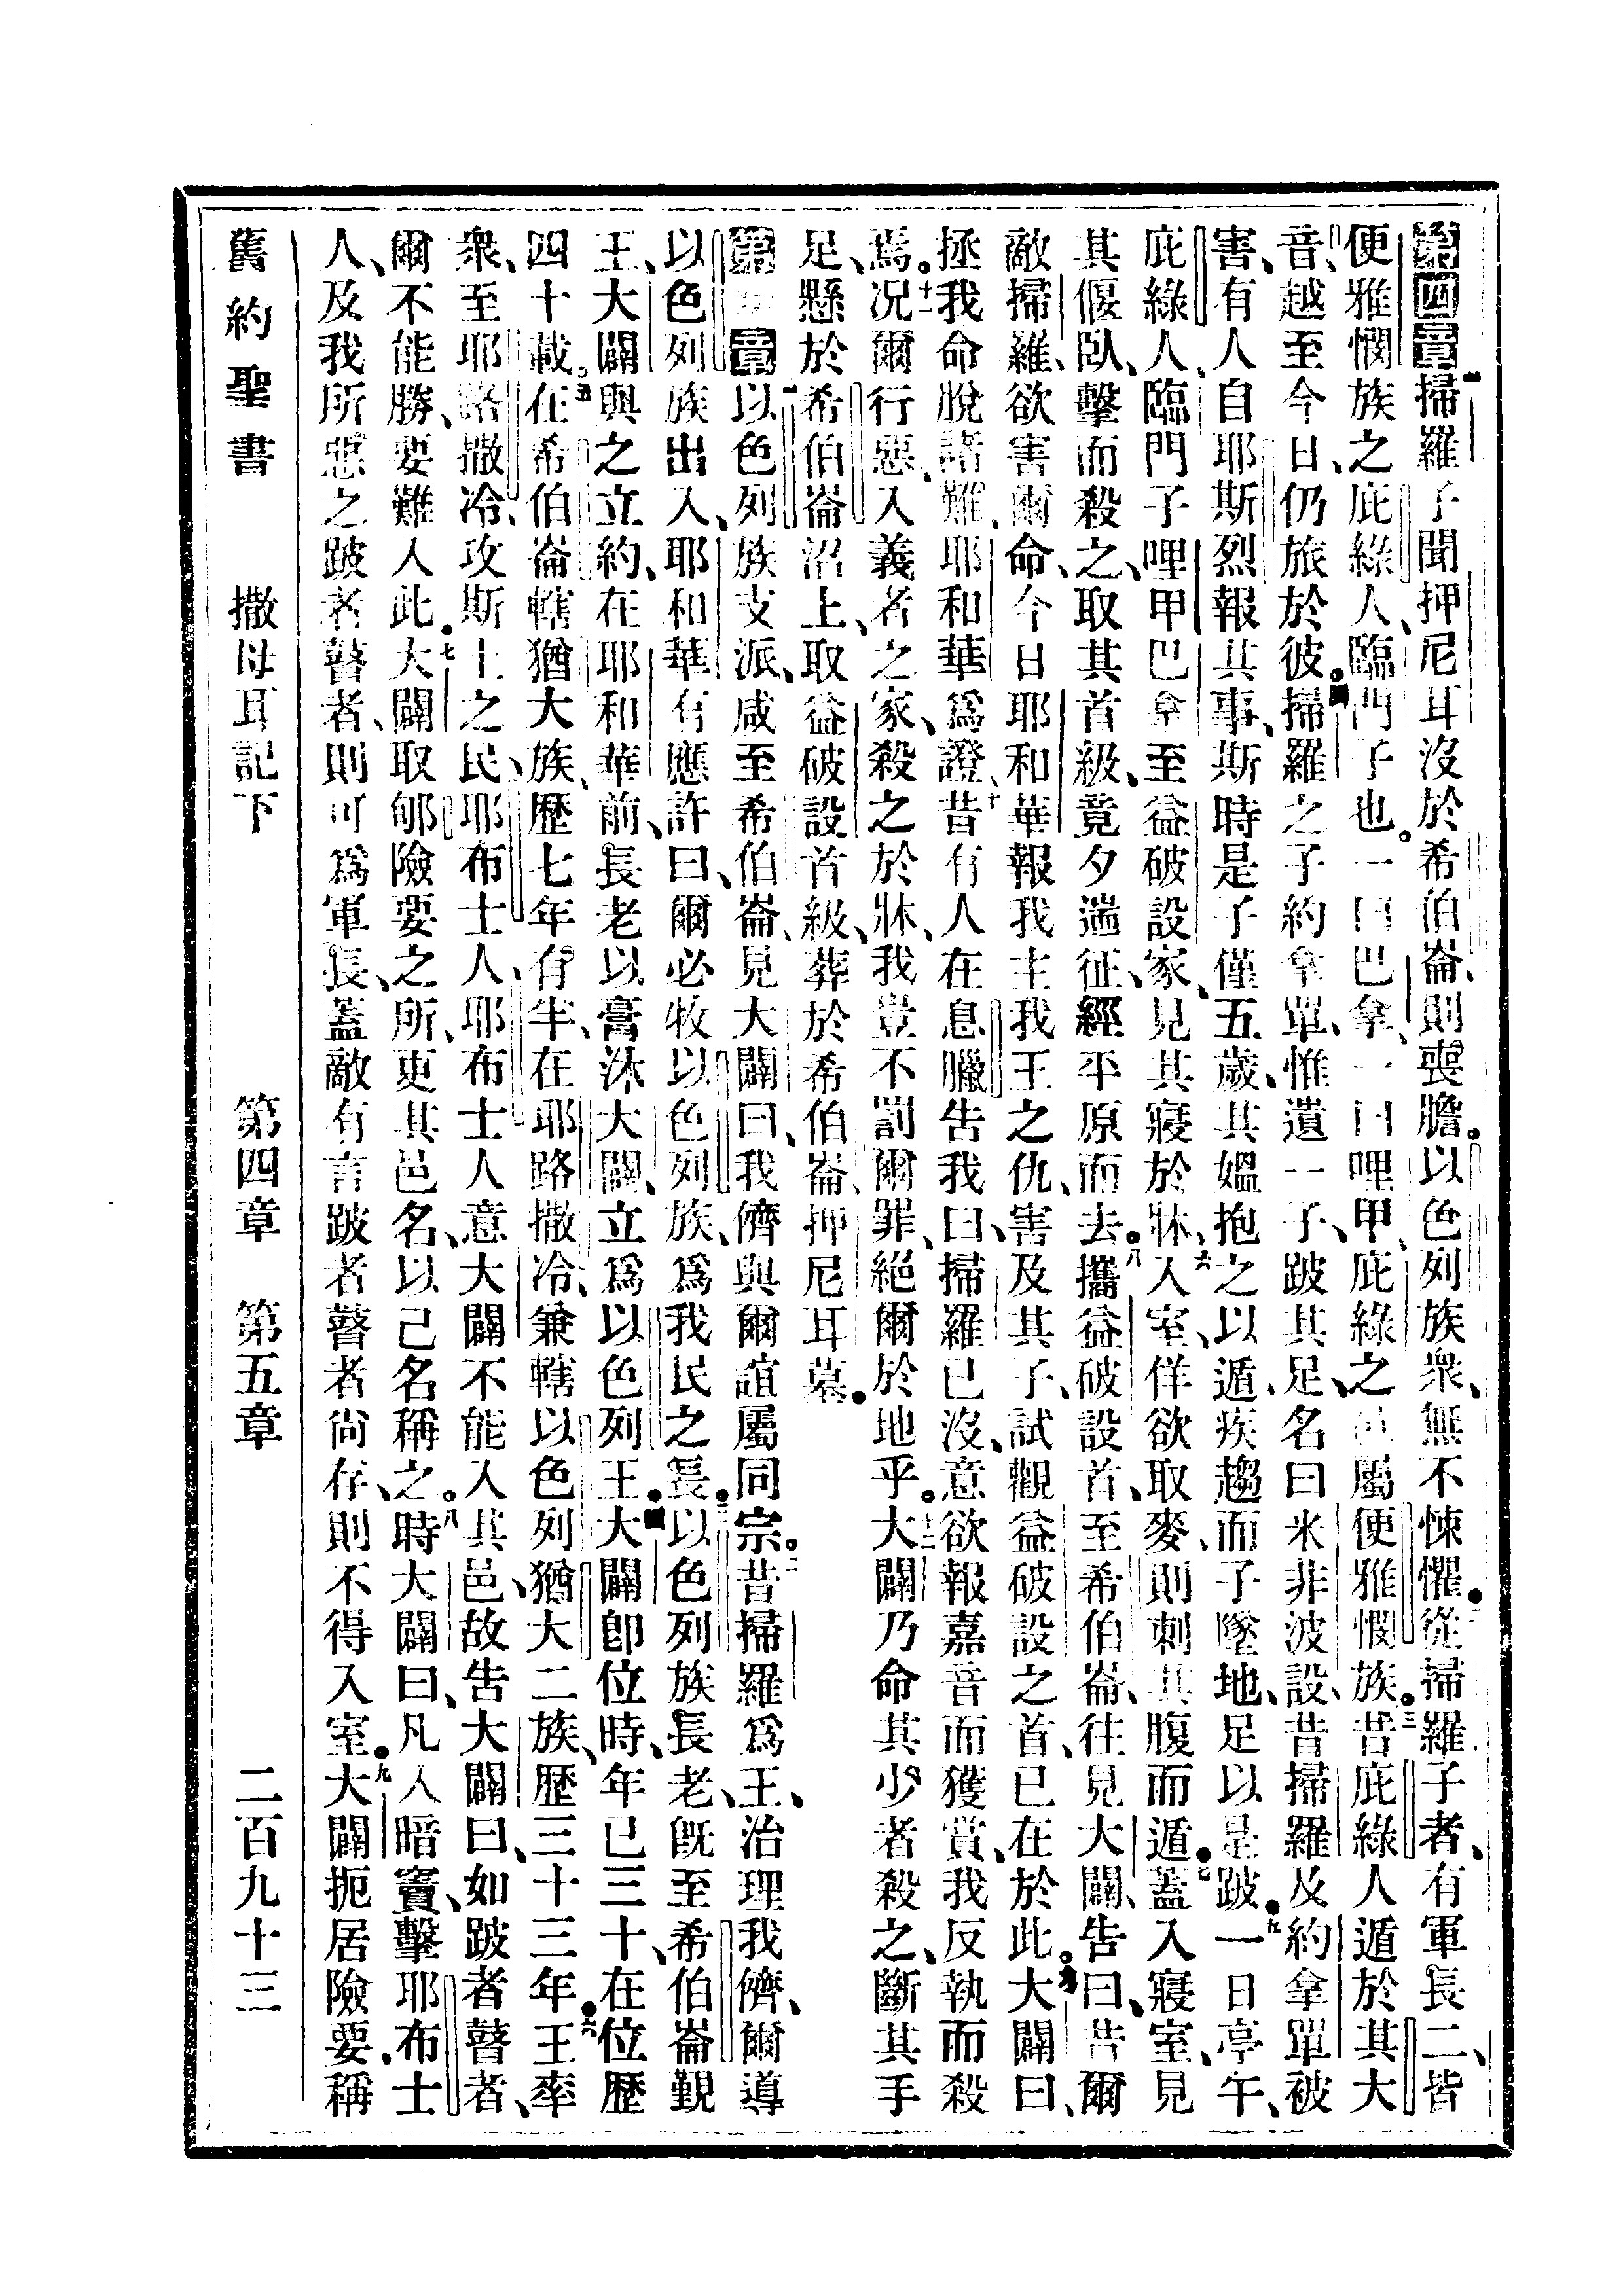 第四章一掃羅子聞押尼耳沒於希伯崙、則喪膽。以色列族衆、無不悚懼。二從掃羅子者、有軍長二、皆
便雅憫族之庇綠人、臨門子也。一曰巴拿、一曰哩甲、庇綠之邑屬便雅憫族。三昔庇綠人遁於其大
音、越至今日、仍旅於彼。四掃羅之子約拿單、惟遺一子、跛其足、名曰米非波設、昔掃羅及約拿單被
害、有人自耶斯烈報其事、斯時是子僅五歲、其媼抱之以遁、疾趨而子墜地、足以是跛。五一日亭午、
庇綠人、臨門子哩甲巴拿至益破設家、見其寢於牀、六入室、佯欲取麥、則刺其腹而遁。七蓋入寢室、見
其偃臥、擊而殺之、取其首級、竟夕遄征、經平原而去。八攜益破設首、至希伯崙、往見大闢、告曰、昔爾
敵掃羅、欲害爾命、今日耶和華報我主我王之仇、害及其子、試觀益破設之首、已在於此。九大闢曰、
拯我命脫諸難、耶和華爲證、十昔有人在息臘告我曰、掃羅已沒、意欲報嘉音而獲賞、我反執而殺
焉。十一況爾行惡、入義者之家、殺之於牀、我豈不罰爾罪、絕爾於地乎。十二大闢乃命其少者殺之、斷其手
足、懸於希伯崙沼上、取益破設首級、葬於希伯崙、押尼耳墓。
第五章一以色列族支派、咸至希伯崙、見大闢曰、我儕與爾誼屬同宗。二昔掃羅爲王、治理我儕、爾導
以色列族出入、耶和華有應許曰、爾必牧以色列族、爲我民之長。三以色列族長老、旣至希伯崙覲
王、大闢與之立約、在耶和華前、長老以膏沐大闢、立爲以色列王。四大闢卽位時、年已三十、在位歷
四十載。五在希伯崙轄猶大族、歷七年有半、在耶路撒冷、兼轄以色列猶大二族、歷三十三年。六王率
衆、至耶路撒冷、攻斯土之民、耶布士人、耶布士人意大闢不能入其邑、故告大闢曰、如跛者瞽者、
爾不能勝、要難入此。七大闢取郇險要之所、更其邑名、以己名稱之。八時大闢曰、凡入暗竇、擊耶布士
人、及我所惡之跛者瞽者、則可爲軍長、蓋敵有言跛者瞽者尙存、則不得入室。九大闢扼居險要、稱
舊約聖書 撒母耳記下 第四章 第五章 二百九十三